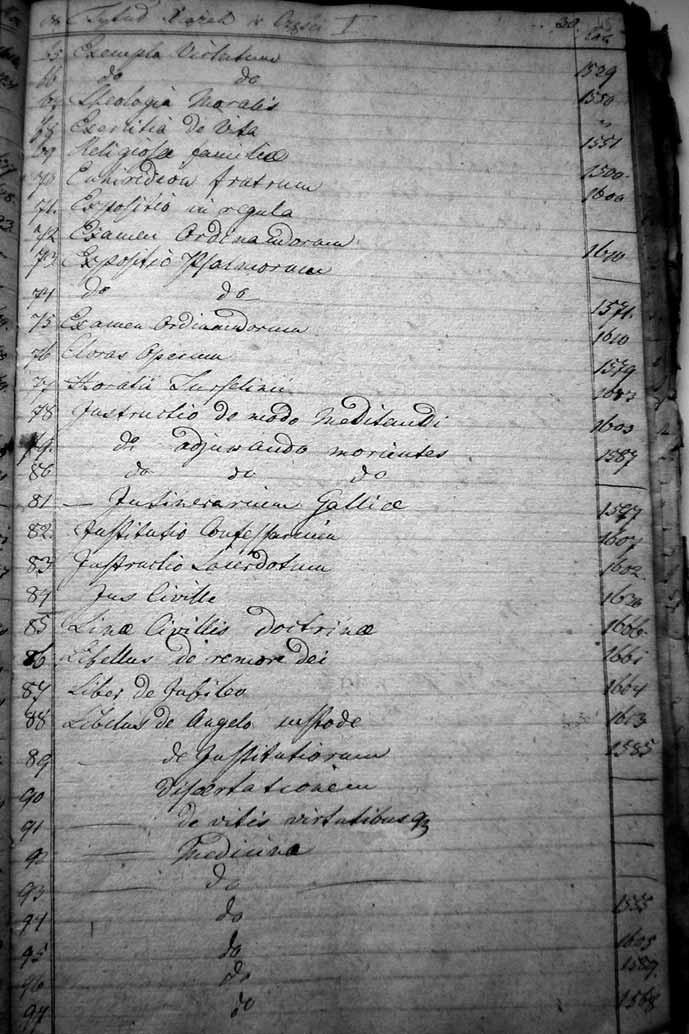 Tytuł Xiążek i Części I 30
65 Exempla Virtutum
66 do do 1529
67 Theologia Moralis 1550
68 Exercitia de Vita "
69 Religiosæ familiæ 1551
70 Enhiridion fratrum 1500
71. Expositio in regula 1600
72 Examen Ordinandorum
73 Expositio Psalmorum 1610
74 do do
75 Examen Ordinandorum 1571.
76 Operum 1610
77 Horatii Turselinii 1579
78 Instructio de modo Meditandi
79. do adjuwando morientes 1603
80 do do do 1587
81 — Intinerarium Galliæ
82. Institutio Confessarium 1607
83 Instructio Sacerdotum 1602.
84 Jus Civille
85 Linæ Civillis doctrinæ 1666
86 Libellus de remore dei 1661
87 Liber de Jubileo 1664
88 Libelus de Angelo custode 1613
89 — de Institutiorum 1585
90 Disertationem —
91 — de vitis virtutibusq3
92 — Medicina —
93 do — —
94 do 1555
95 do 1605
96 do 1589.
97 do 1568